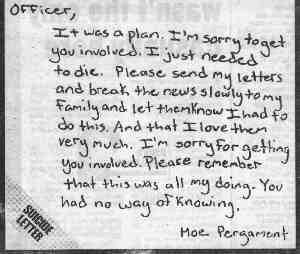 Officer,
It was a plan. I'm sorry to get
you involved. I just needed
to die. Please send my letters
and break the news slowly to my
family and let them know I had to
do this. And that I love them
very much. I'm sorry for getting
you involved. Please remember
that this was all my doing. You
had no way of knowing.
Moe Pergament
SUICIDE
LETTER